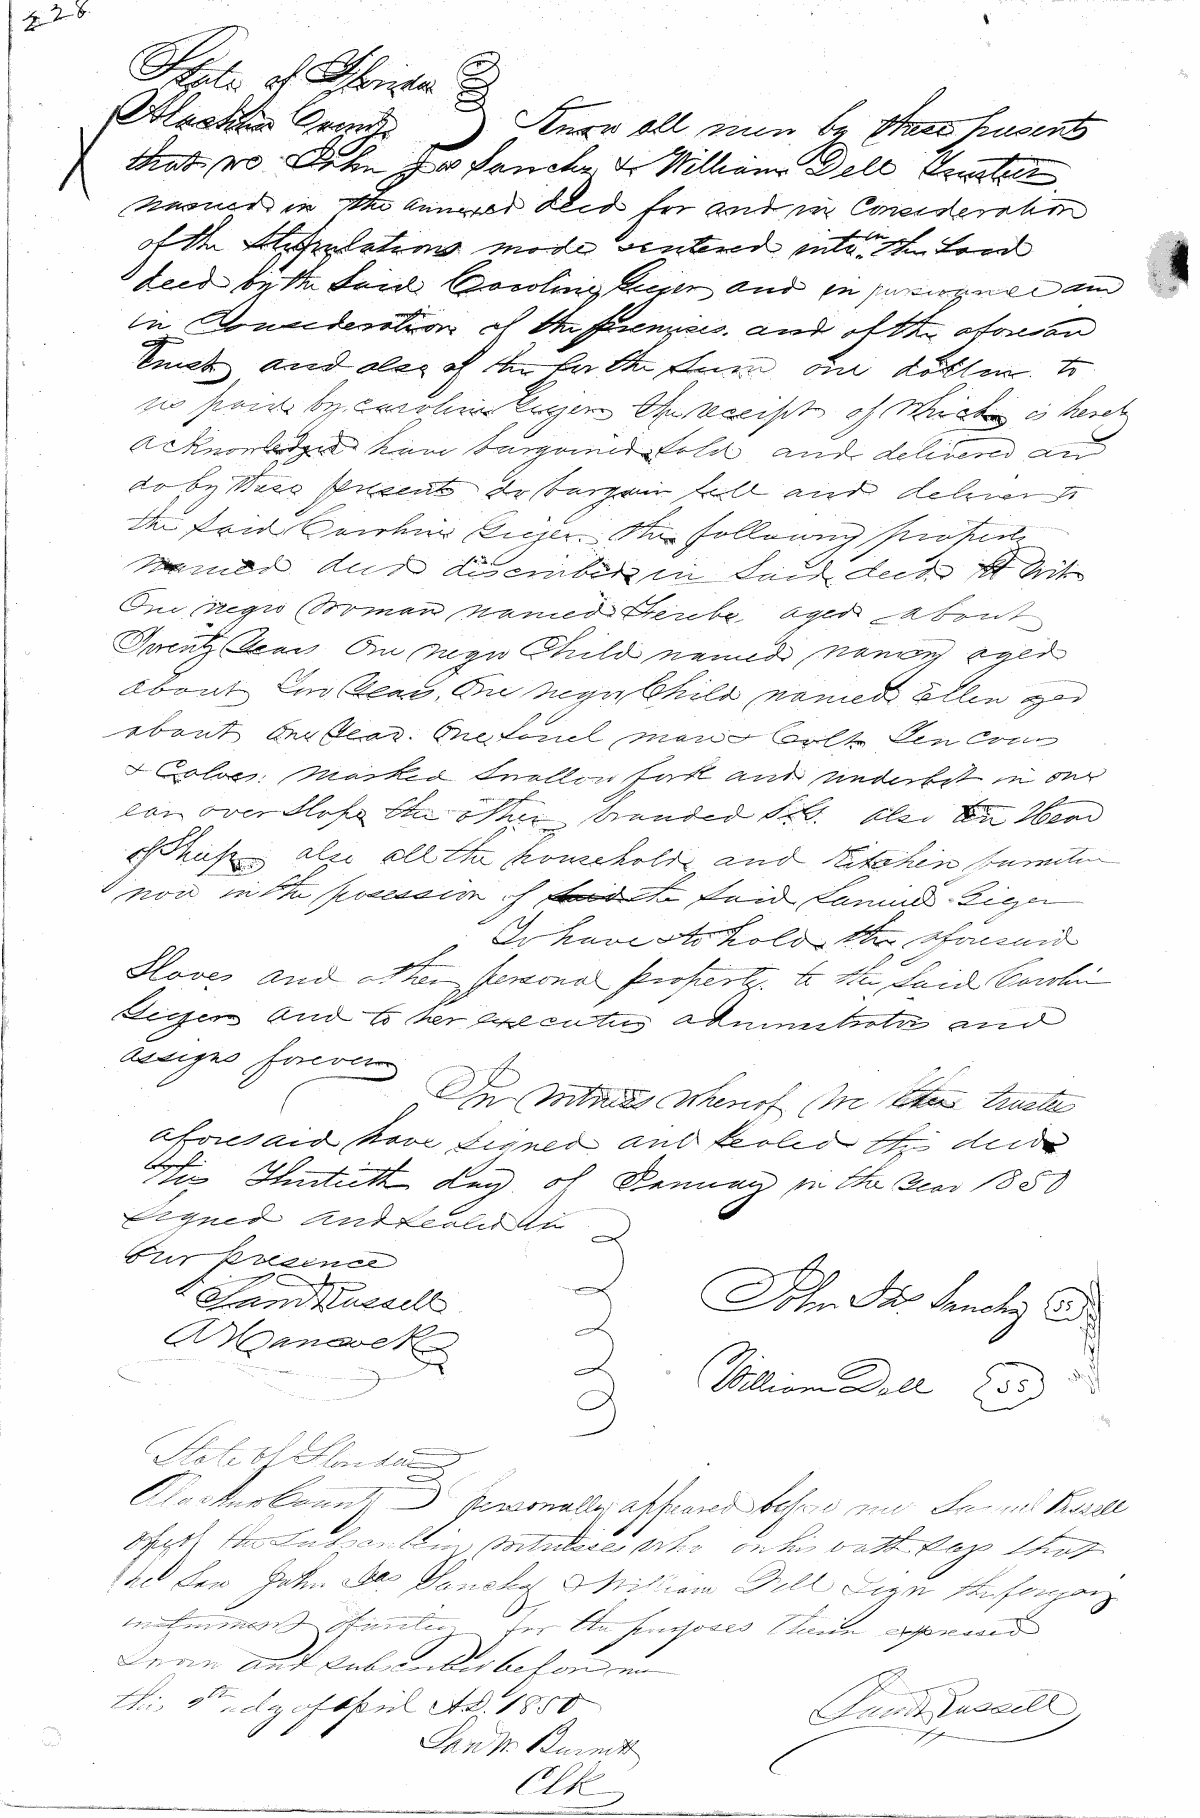 228
State of Florida
Alachua County Know all men by these presents
that we John Jas Sanchy & William Dell Trustees
named in the annexed deed for and in Consideration
of the Stipulations made entered into in the Said
deed by the Said Caroline Geiger and in pursuance an
in Consideration of the premises and of the aforesaid
Trust and also of the for the Sum one dollar to
us paid by Caroline Geiger the receipt of Which is hereby
acknowledged have bargained sold and delivered and
do by these present do bargain sell and deliver to
the Said Caroline Geiger the following property
named deed discribed in Said deed to Wit
One negro Woman named Feribe aged about
Twenty Years One negro Child named nancy aged
about Two Years, One negro Child named Ellen aged
about One Year. One Sorrel mare & Colt Ten Cows
& Calves marked Swallow fork and underbit in one
ear over Slope the other branded S.G. also ten Head
of Sheep also all the household and Kitchen furniture
now in the posession of the Said Samuel Geiger
To have & to hold the aforesaid
Slaves and other personal property to the Said Caroline
Geiger and to her executers administrators and
assigns forever
In Witness Whereof We the trustees
aforesaid have Signed and Sealed this deed
this Thirtieth day of January in the Year 1850
Signed and Sealed in
our presence
Saml Russell
A Hancock
John Jas. Sanchy SS
William Dell SS
State of Florida
Alachua County Personally appeared before me Samuel Russell
of the Subscribing Witnesses who on his oath Says that
he Saw John Jas Sanchy & William Dell Sign the forgoing
instrument of writing for the purposes therein expressed
Sworn and Subscribed before me
this 9th day of April A.D. 1850
Saml Russell
Sam W. Burnett
Clk